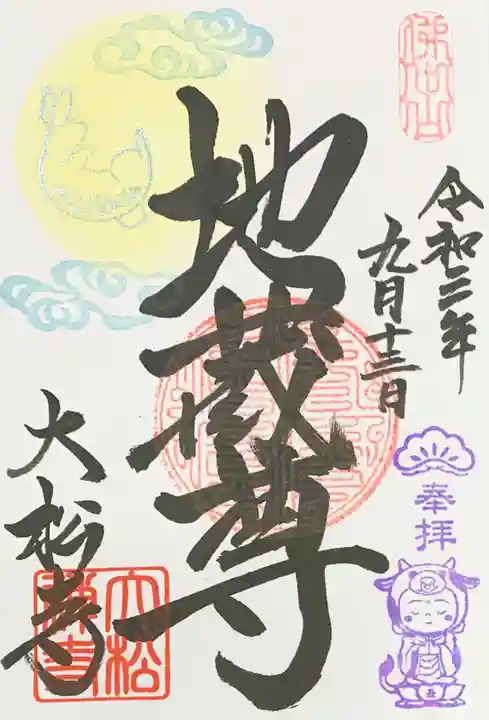 令和三年
九月十三日
奉拝
丑
地蔵尊
大松寺
大松